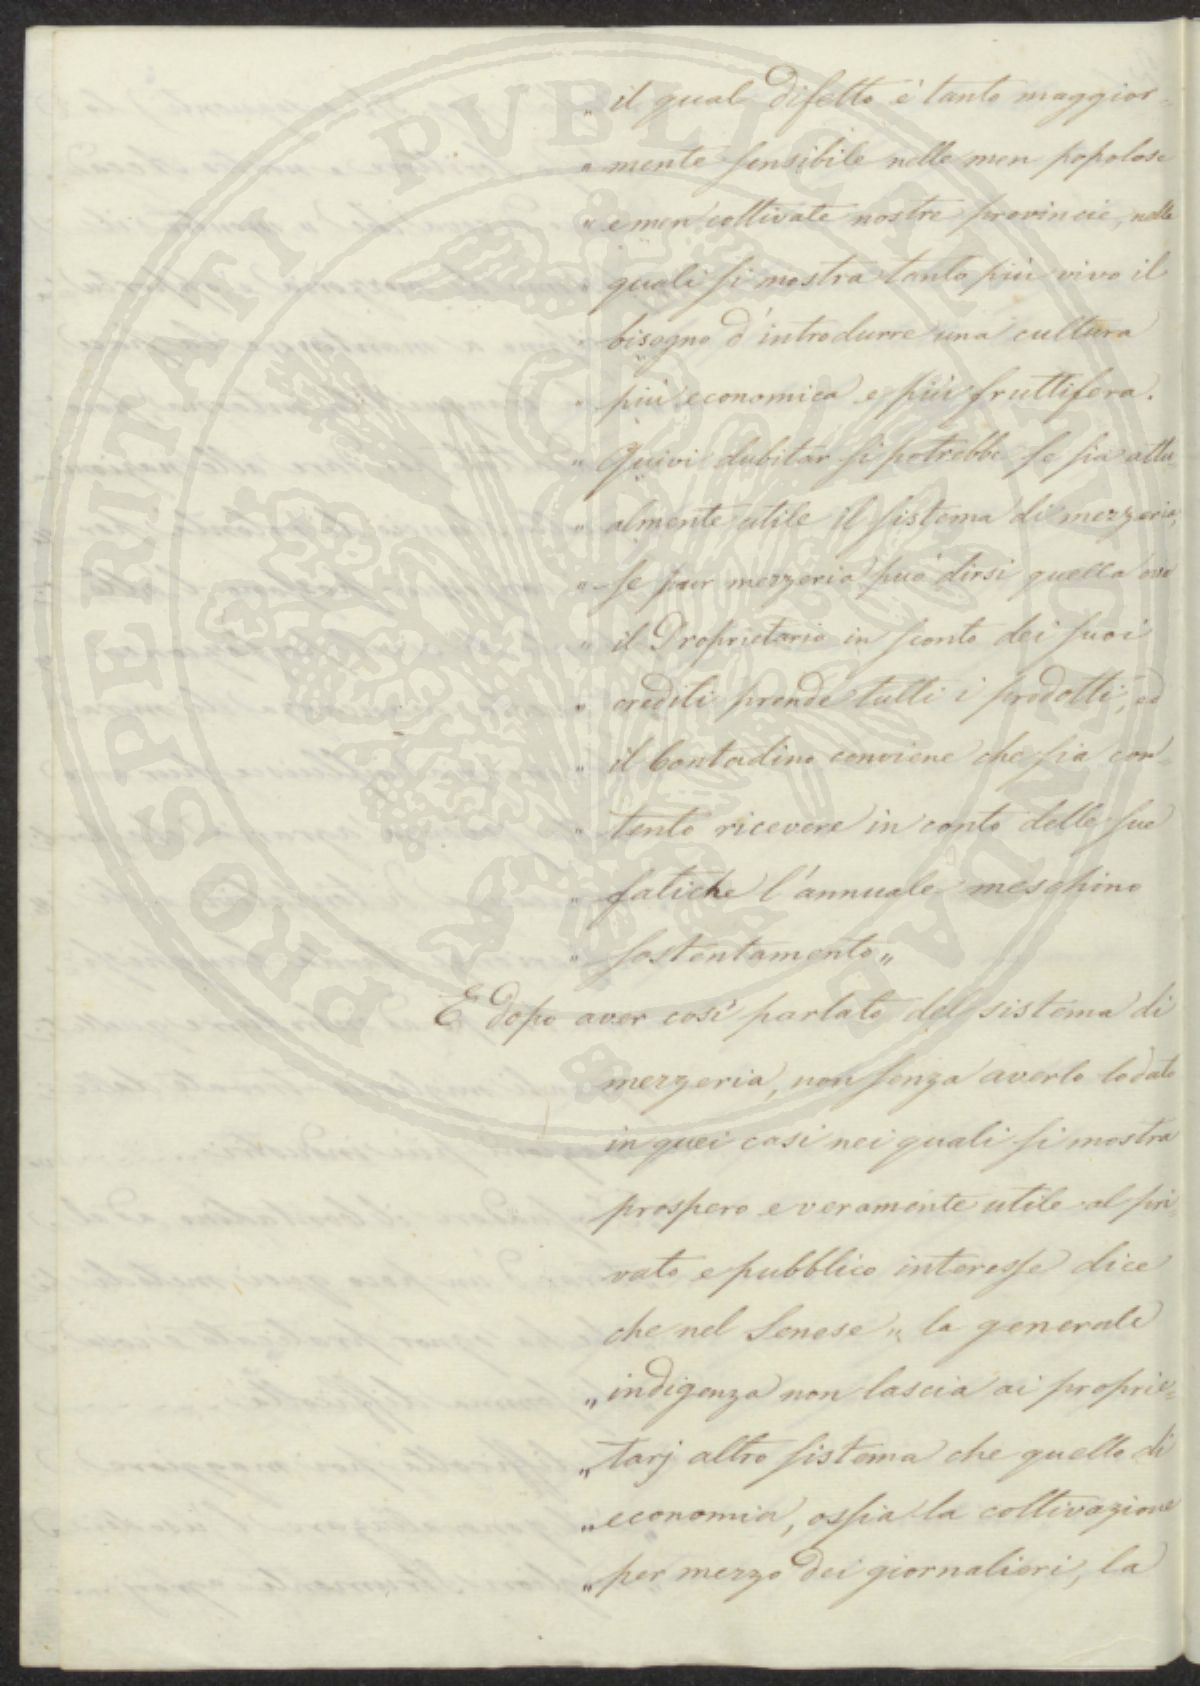 „ il qual difetto è tanto maggior=
„ mente sensibile nelle men popolose
„ e men coltivate nostre provincie, nelle
„ quali si mostra tanto più vivo il
„ bisogno d'introdurre una cultura
„ più economica e più fruttifera.
„ Quivi dubitar si potrebbe se sia attu=
„ almente utile il sistema di mezzeria,
„ se pur mezzeria può dirsi quella ove
„ il Proprietario in sconto dei suoi
„ crediti prende tutti i prodotti, ed
„ il Contadino conviene che sia con=
„ tento ricevere in conto delle sue
„ fatiche l'annuale meschino
„ sostentamento„
E dopo aver così parlato del sistema di
mezzeria, non senza averlo lodato
in quei casi nei quali si mostra
prospero e veramente utile al pri=
vato e pubblico interesse dice
che nel Senese „ la generale
„ indigenza non lascia ai proprie=
„ tarj altro sistema che quello di
„ economia, ossia la coltivazione
„ per mezzo dei giornalieri, la
PROSPERITATI PVBLICAE AVGENDAE